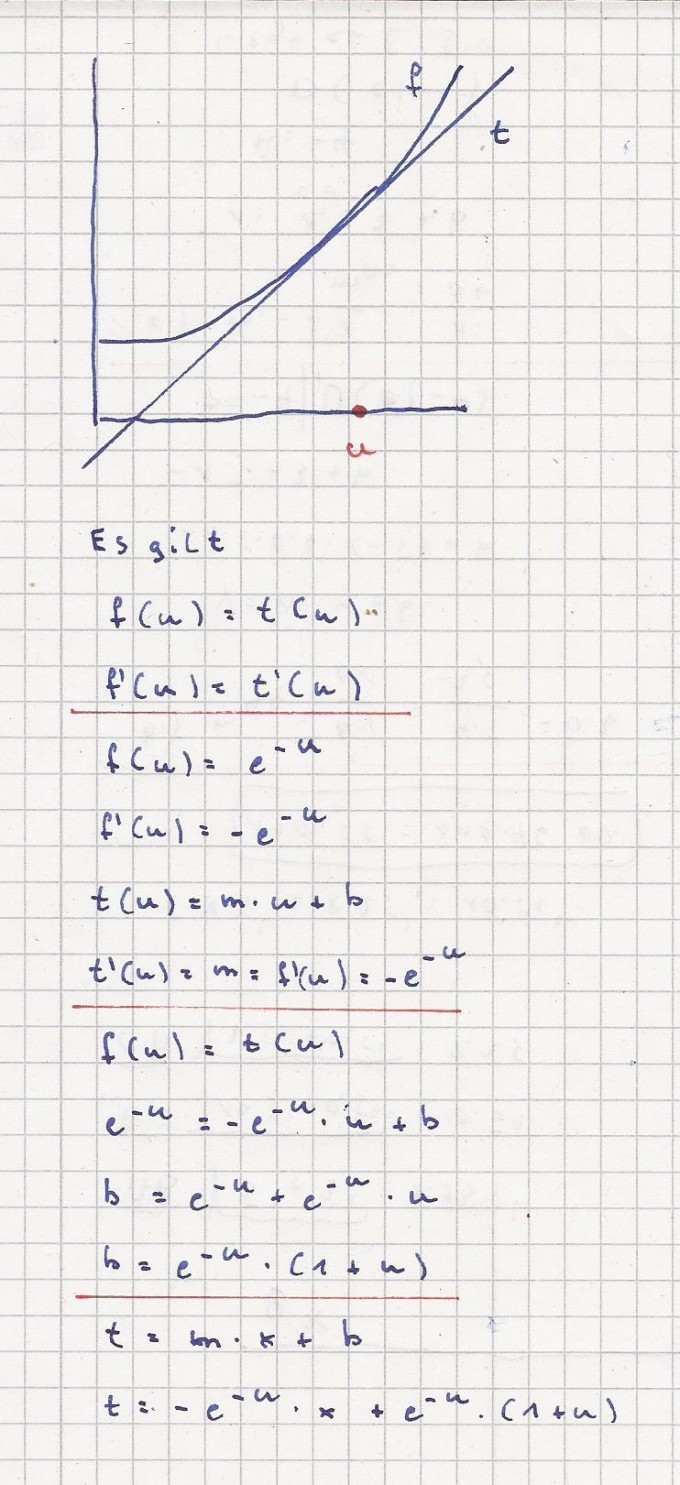 f
t
u
Es gilt
f(u) = t(u)
f'(u) = t'(u)
f(u) = e^-u
f'(u) = -e^-u
t(u) = m · u + b
t'(u) = m = f'(u) = -e^-u
f(u) = t(u)
e^-u = -e^-u · u + b
b = e^-u + e^-u · u
b = e^-u · (1 + u)
t = m · x + b
t = -e^-u · x + e^-u · (1+u)